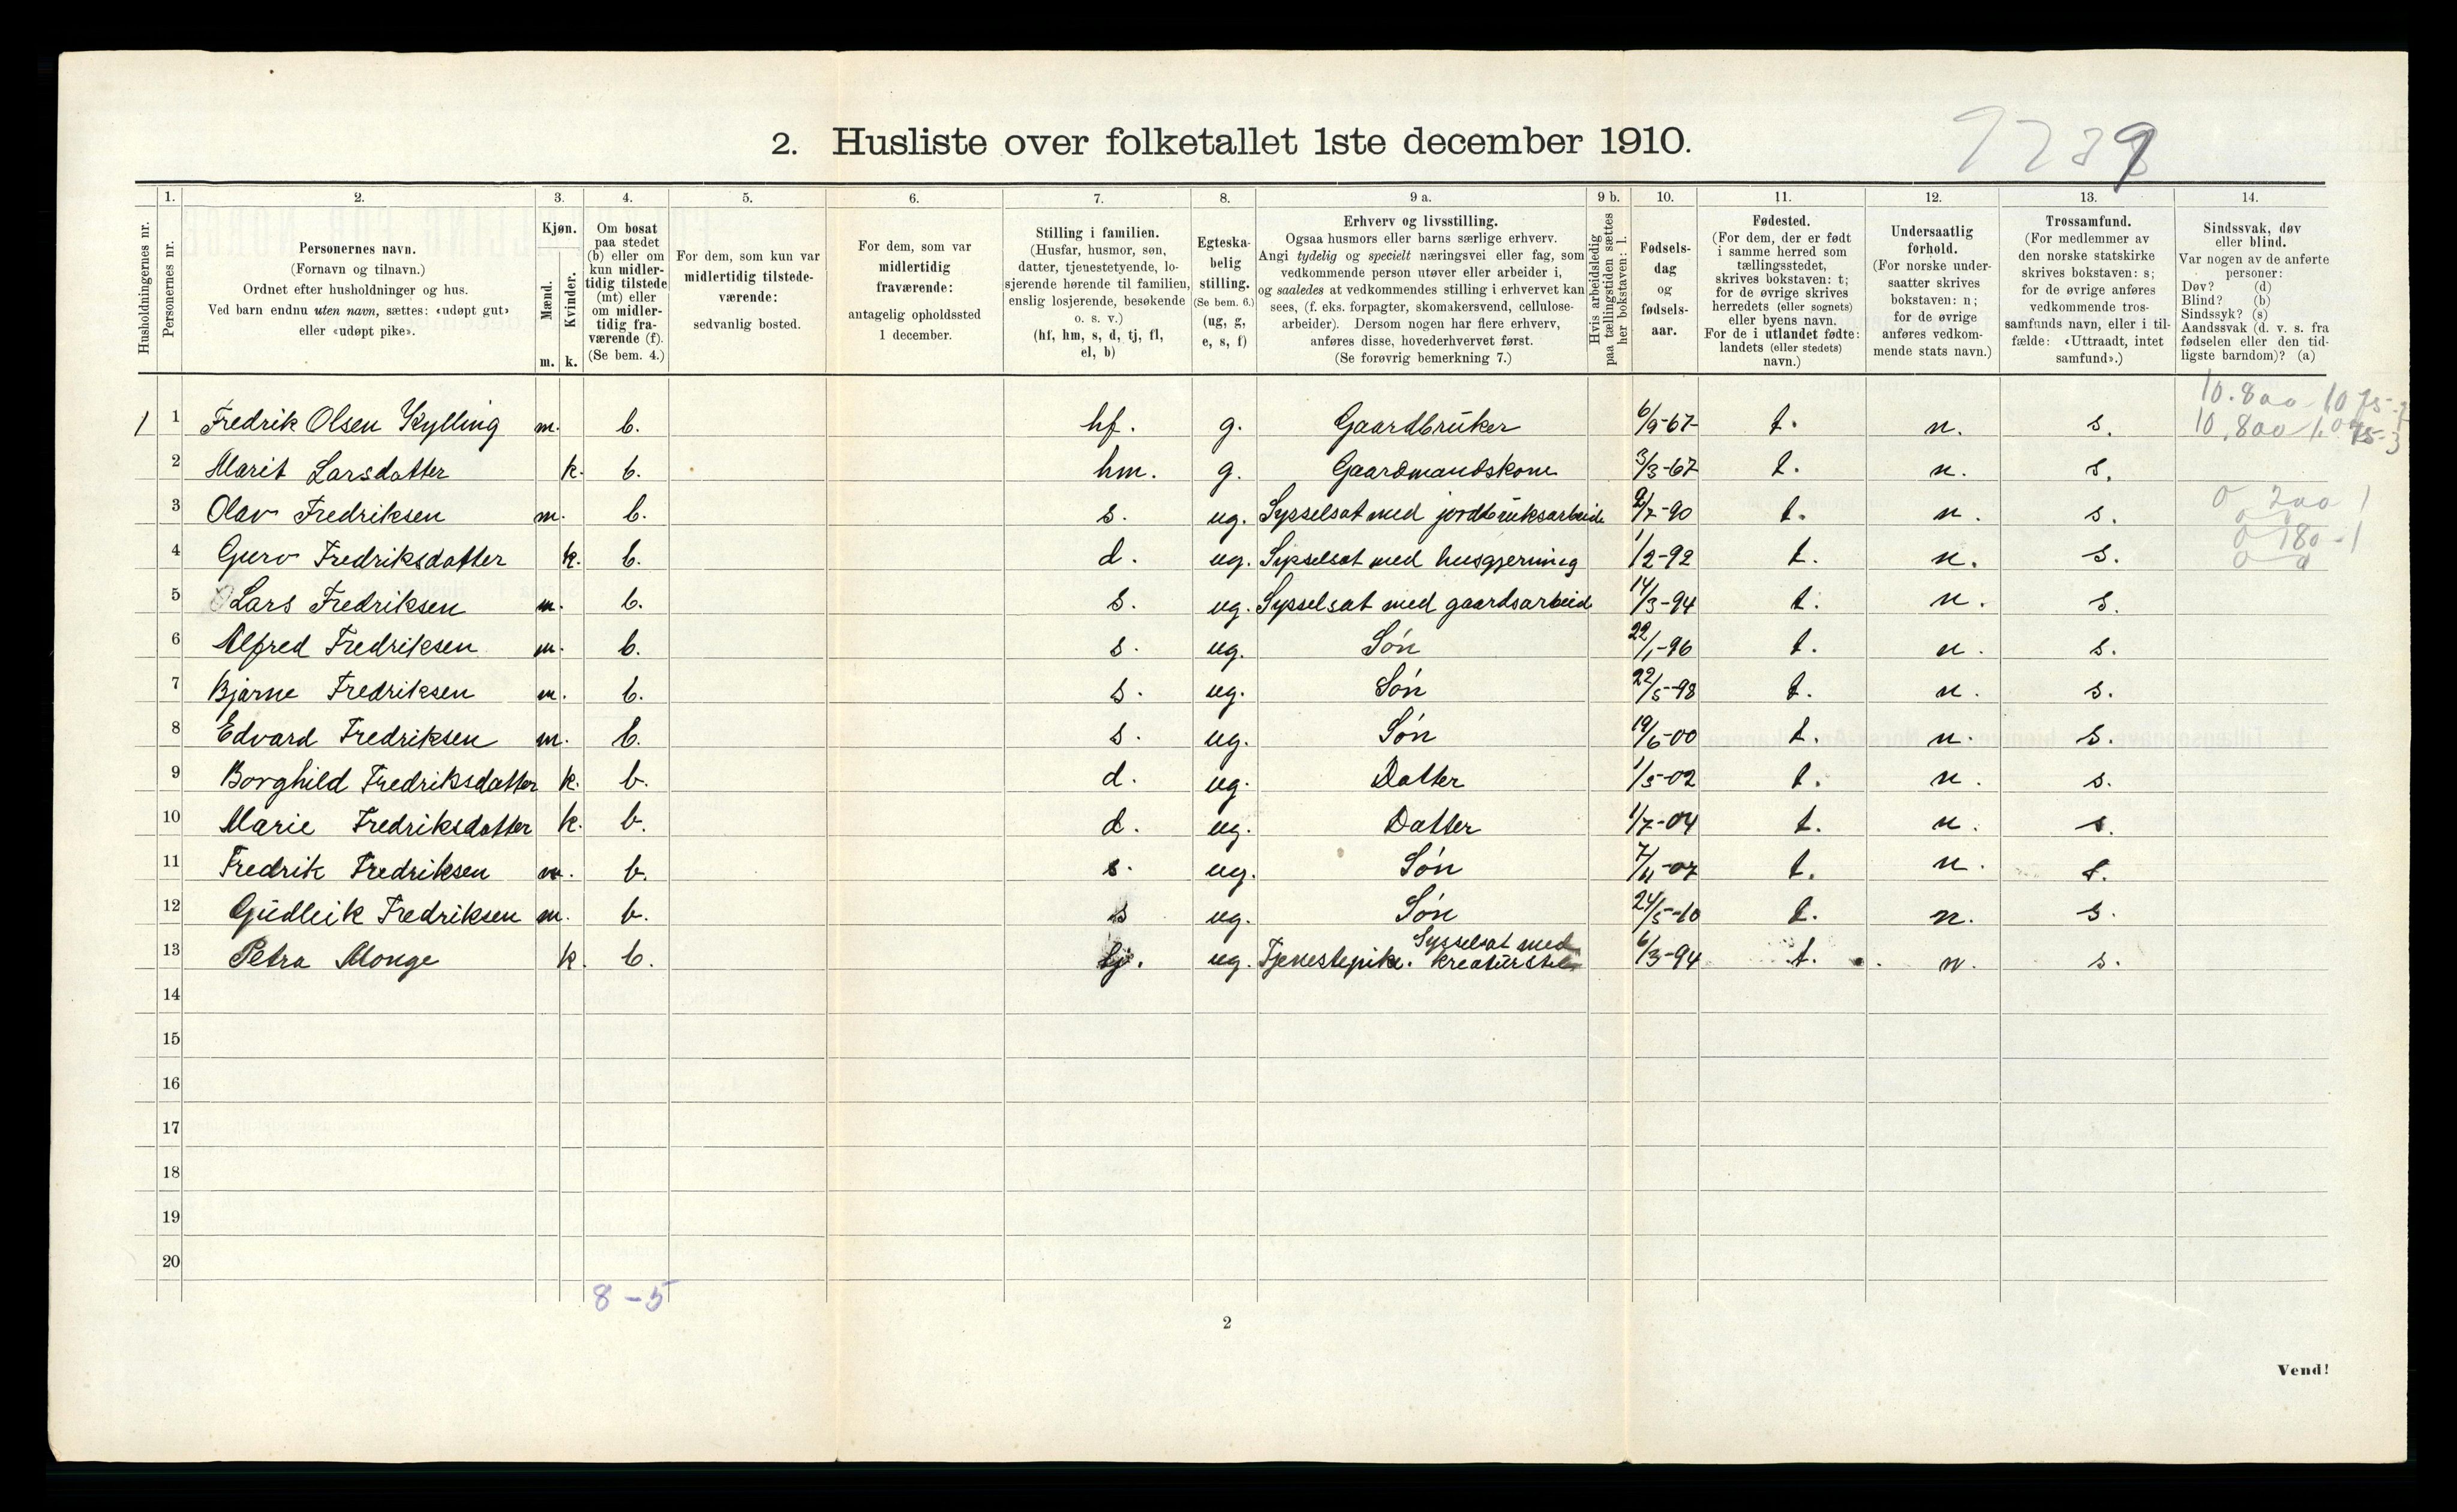 2. Husliste over folketallet 1ste december 1910.
Husholdningernes nr.
1.
Personernes nr.
2.
Personernes navn.
(Fornavn og tilnavn.)
Ordnet efter husholdninger og hus.
Ved barn endnu uten navn, sættes: «udøpt gut»
eller «udøpt pike».
3.
Kjøn.
Mænd.
Kvinder.
m. k.
4.
Om bosat
paa stedet
(b) eller om
kun midler-
tidig tilstede
(mt) eller
om midler-
tidig fra-
værende (f).
(Se bem. 4.)
5.
For dem, som kun var
midlertidig tilstede-
værende:
sedvanlig bosted.
6.
For dem, som var
midlertidig
fraværende:
antagelig opholdssted
1 december.
7.
Stilling i familien.
(Husfar, husmor, søn,
datter, tjenestetyende, lo-
sjerende hørende til familien,
enslig losjerende, besøkende
o. s. v.)
(hf, hm, s, d, tj, fl,
el, b)
8.
Egteska-
belig
stilling.
(Se bem. 6.)
(ug, g,
e, s, f)
9 a.
Erhverv og livsstilling.
Ogsaa husmors eller barns særlige erhverv.
Angi tydelig og specielt næringsvei eller fag, som
vedkommende person utøver eller arbeider i,
og saaledes at vedkommendes stilling i erhvervet kan
sees, (f. eks. forpagter, skomakersvend, cellulose-
arbeider). Dersom nogen har flere erhverv,
anføres disse, hovederhvervet først.
(Se forøvrig bemerkning 7.)
9 b.
Hvis arbeidsledig
paa tællingstiden sættes
her bokstaven: l.
10.
Fødsels-
dag
og
fødsels-
aar.
11.
Fødested.
(For dem, der er født
i samme herred som
tællingsstedet,
skrives bokstaven: t;
for de øvrige skrives
herredets (eller sognets)
eller byens navn.
For de i utlandet fødte:
landets (eller stedets)
navn.)
12.
Undersaatlig
forhold.
(For norske under-
saatter skrives
bokstaven: n;
for de øvrige
anføres vedkom-
mende stats navn.)
13.
Trossamfund.
(For medlemmer av
den norske statskirke
skrives bokstaven: s;
for de øvrige anføres
vedkommende tros-
samfunds navn, eller i til-
fælde: «Uttraadt, intet
samfund».)
14.
Sindssvak, døv
eller blind.
Var nogen av de anførte
personer:
Døv? (d)
Blind? (b)
Sindssyk? (s)
Aandssvak (d. v. s. fra
fødselen eller den tid-
ligste barndom)? (a)
1 1 Fredrik Olsen Kylling m. b. hf. g. Gaardbruker 6/9-67 t. n. s.
2 Marit Larsdatter k. b. hm. g. Gaardmandskone 3/3-67 t. n. s.
3 Olav Fredriksen m. b. s. ug. Sysselsat med jordbruksarbeide 9/7-90 t. n. s.
4 Guro Fredriksdatter k. b. d. ug. Sysselsat med husgjerning 1/2-92 t. n. s.
5 Lars Fredriksen m. b. s. ug. Sysselsat med gaardsarbeid 14/3-94 t. n. s.
6 Alfred Fredriksen m. b. s. ug. Søn 22/1-96 t. n. s.
7 Bjarne Fredriksen m. b. s. ug. Søn 22/5-98 t. n. s.
8 Edvard Fredriksen m. b. s. ug. Søn 19/6-00 t. n. s.
9 Borghild Fredriksdatter k. b. d. ug. Datter 1/5-02 t. n. s.
10 Marie Fredriksdatter k. b. d. ug. Datter 1/7-04 t. n. s.
11 Fredrik Fredriksen m. b. s. ug. Søn 7/11-07 t. n. s.
12 Gudleik Fredriksen m. b. s ug. Søn 24/5-10 t. n. s.
13 Petra Monge k. b. tj. ug. Tjenestepike. Sysselsat med kreaturstel 6/3-94 t. n. s.
14
15
16
17
18
19
20
8-5
2
Vend!